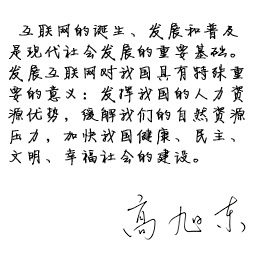 互联网的诞生、发展和普及
是现代社会发展的重要基础。
发展互联网对我国具有特殊重
要的意义：发挥我国的人力资
源优势，缓解我们的自然资源
压力，加快我国健康、民主、
文明、幸福社会的建设。
高旭东